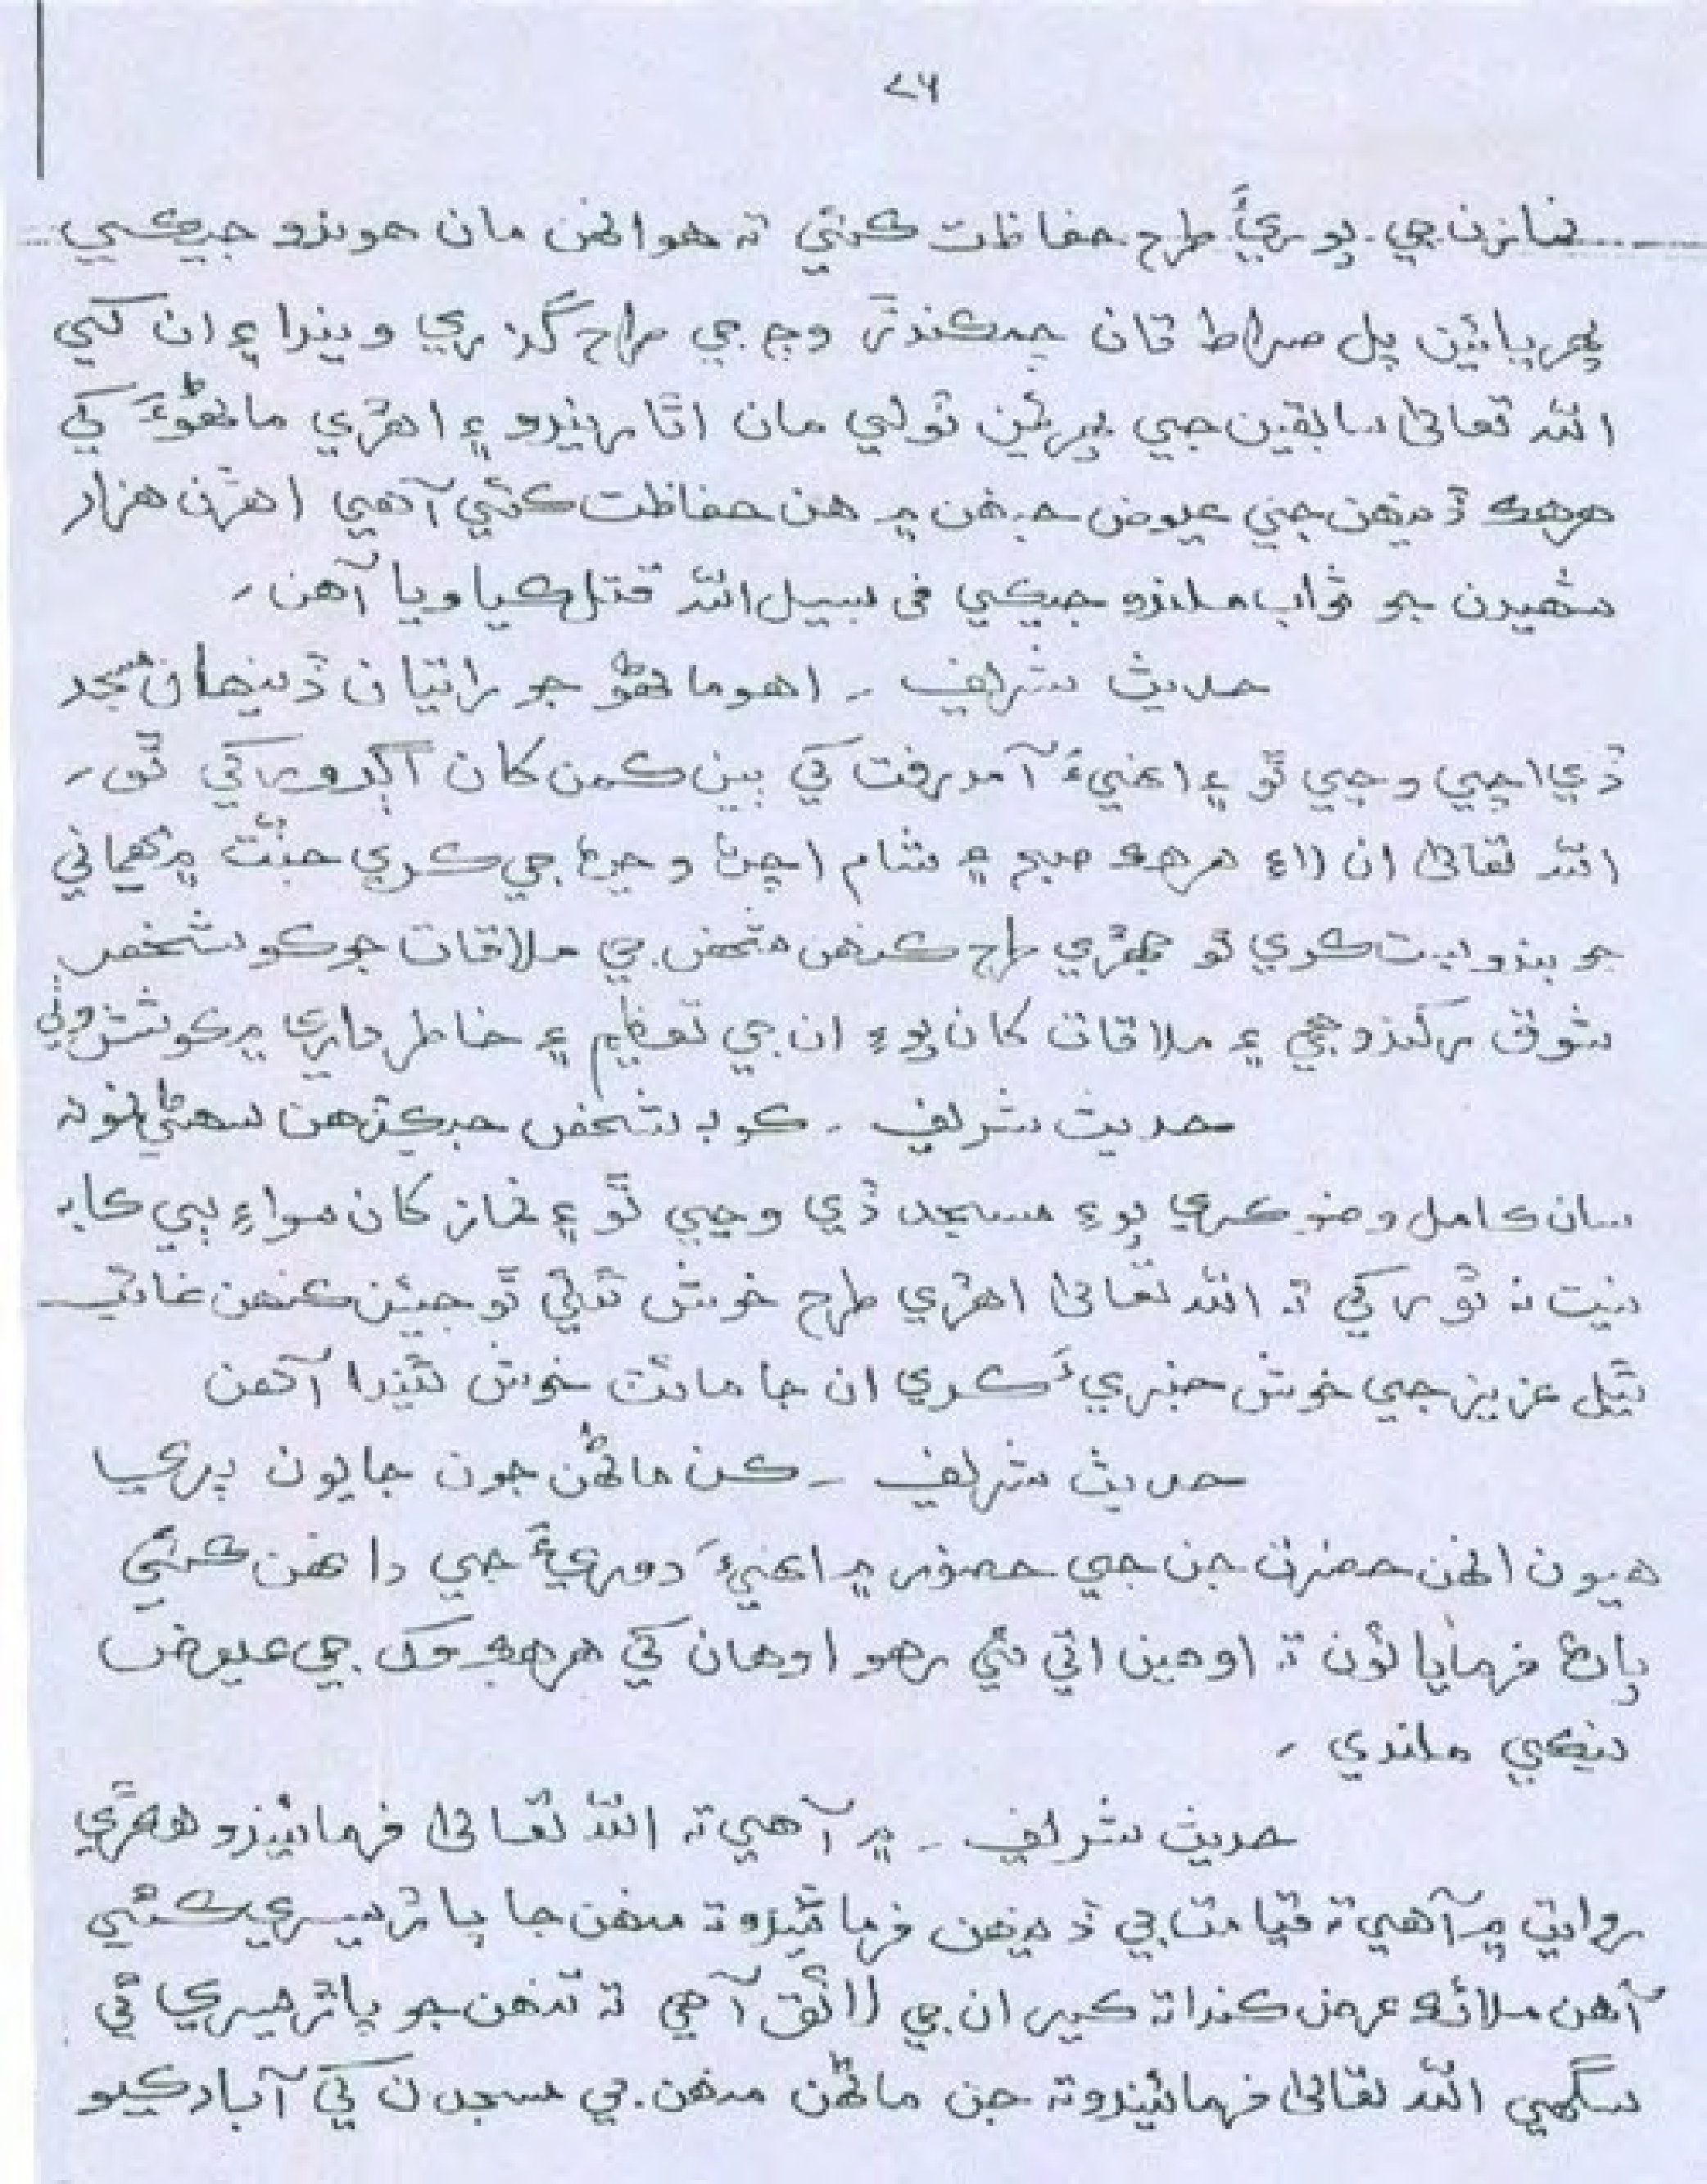 ٧٦
نمازن جي پوريءَ طرح حفاظت ڪئي ته هو انهن مان هوندو جيڪي
پهريائين پل صراط تان چمڪندڙ وڄ جي طرح گذري ويندا ۽ ان کي
الله تعاليٰ سابقين جي پهرئين ٽولي مان اٿاريندو ۽ اهڙي ماڻهوءَ کي
هرهڪ ڏينهن جي عيوض جنهن ۾ هن حفاظت ڪئي آهي اهڙن هزار
شهيدن جو ثواب ملندو جيڪي في سبيل الله قتل ڪيا ويا آهن۔
حديث شريف ۔ اهو ماڻهو جو راتيان ڏينهان مسجد
ڏي اچي وڃي ٿو ۽ اهڙيءَ آمدرفت کي ٻين ڪمن کان اڳرو رکي ٿو۔
الله تعاليٰ ان لاءِ هرهڪ صبح ۽ شام اچڻ وڃڻ جي ڪري جنت ۾ مهماني
جو بندوبست ڪري ٿو جهڙي طرح ڪنهن شخص جي ملاقات جوڪو شخص
شوق رکندو هجي ۽ ملاقات کان پوءِ ان جي تعظيم ۽ خاطرداري ۾ ڪوشش وٺي
حديث شريف ۔ ڪو به شخص جيڪڏهن سهڻي نموني
سان ڪامل وضو ڪري پوءِ مسجد ڏي وڃي ٿو ۽ نماز کان سواءِ ٻي ڪا به
نيت نه ٿو رکي ته الله تعاليٰ اهڙي طرح خوش ٿئي ٿو جيئن ڪنهن غائب
ٿيل عزيز جي خوش خبريءَ ڪري ان جا مائٽ خوش ٿيندا آهن
حديث شريف ۔ ڪن ماڻهن جون جايون پري
هيون انهن حضرت جن جي حضور ۾ اهڙيءَ دوريءَ جي دانهن ڪئي
پاڻ فرمايائون ته اوهين اتي ئي رهو اوهان کي هرهڪ وک جي عيوض
نيڪي ملندي ۔
حديث شريف ۔ ۾ آهي ته الله تعاليٰ فرمائيندو هڪڙي
روايت ۾ آهي ته قيامت جي ڏينهن فرمائيندو ته منهن جا پاڙيسري ڪٿي
آهن ملائڪ عرض ڪندا ته ڪير ان جي لائق آهي ته تنهن جو پاڙيسري ٿي
سگهي الله تعاليٰ فرمائيندو ته جن ماڻهن منهن جي مسجدن کي آباد ڪيو